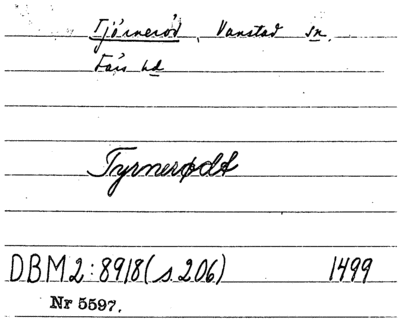 Tjörneröd, Vanstad sn.
Färs hd
Tyrnerødt
DBM2:8918(s.206) 1499
Nr 5597.